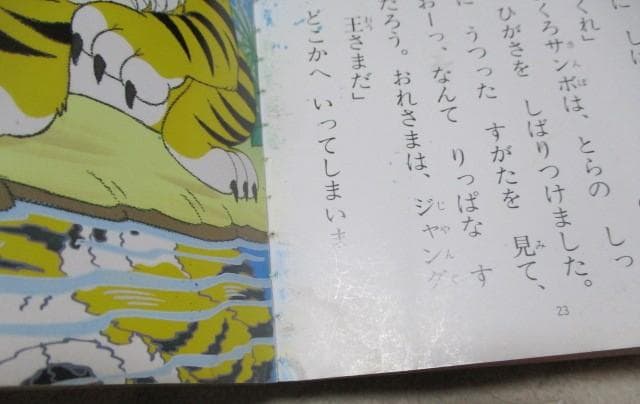 くれ」
くろサンボは、とらの しっ
ひがさを しばりつけました。
に うつった すがたを 見て、
おーっ、なんて りっぱな す
だろう。おれさまは、ジャング
王さまだ」
どこかへ いってしまいま
23